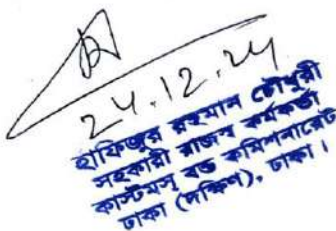 24.12.24
হাফিজুর রহমান চৌধুরী
সহকারী রাজস্ব কর্মকর্তা
কাস্টমস্ বন্ড কমিশনারেট
ঢাকা (দক্ষিণ), ঢাকা।